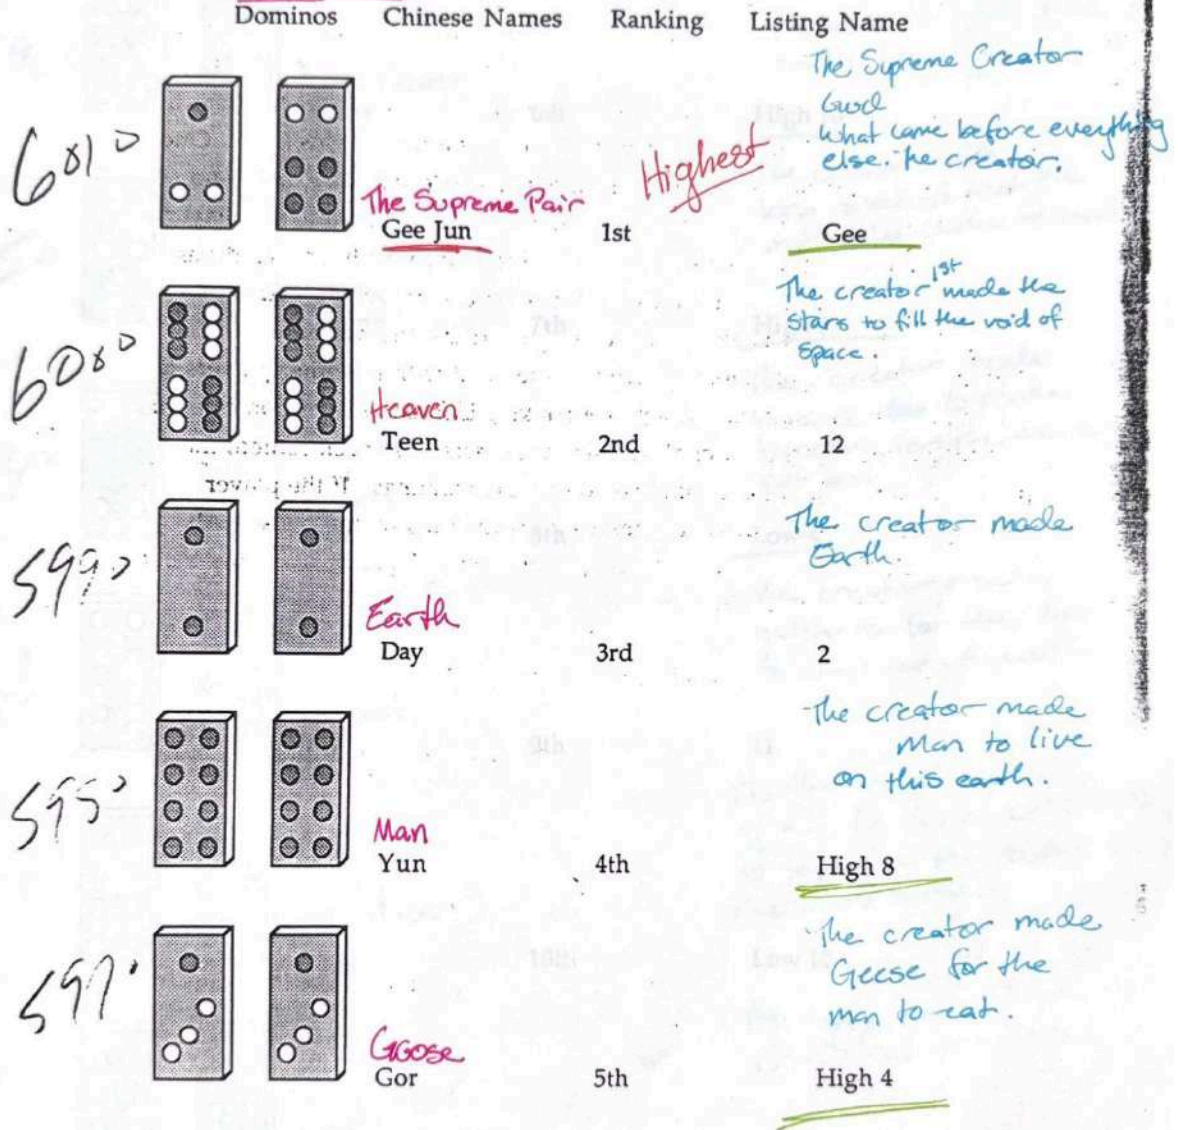 Dominos Chinese Names Ranking Listing Name
The Supreme Creator
God
What came before everything
else. The creator.
Highest
The Supreme Pair
Gee Jun 1st Gee
The creator 1st made the
stars to fill the void of
space.
Heaven
Teen 2nd 12
If the player
The creator made
Earth.
Earth
Day 3rd 2
The creator made
Man to live
on this earth.
Man
Yun 4th High 8
The creator made
Geese for the
man to eat.
Goose
Gor 5th High 4